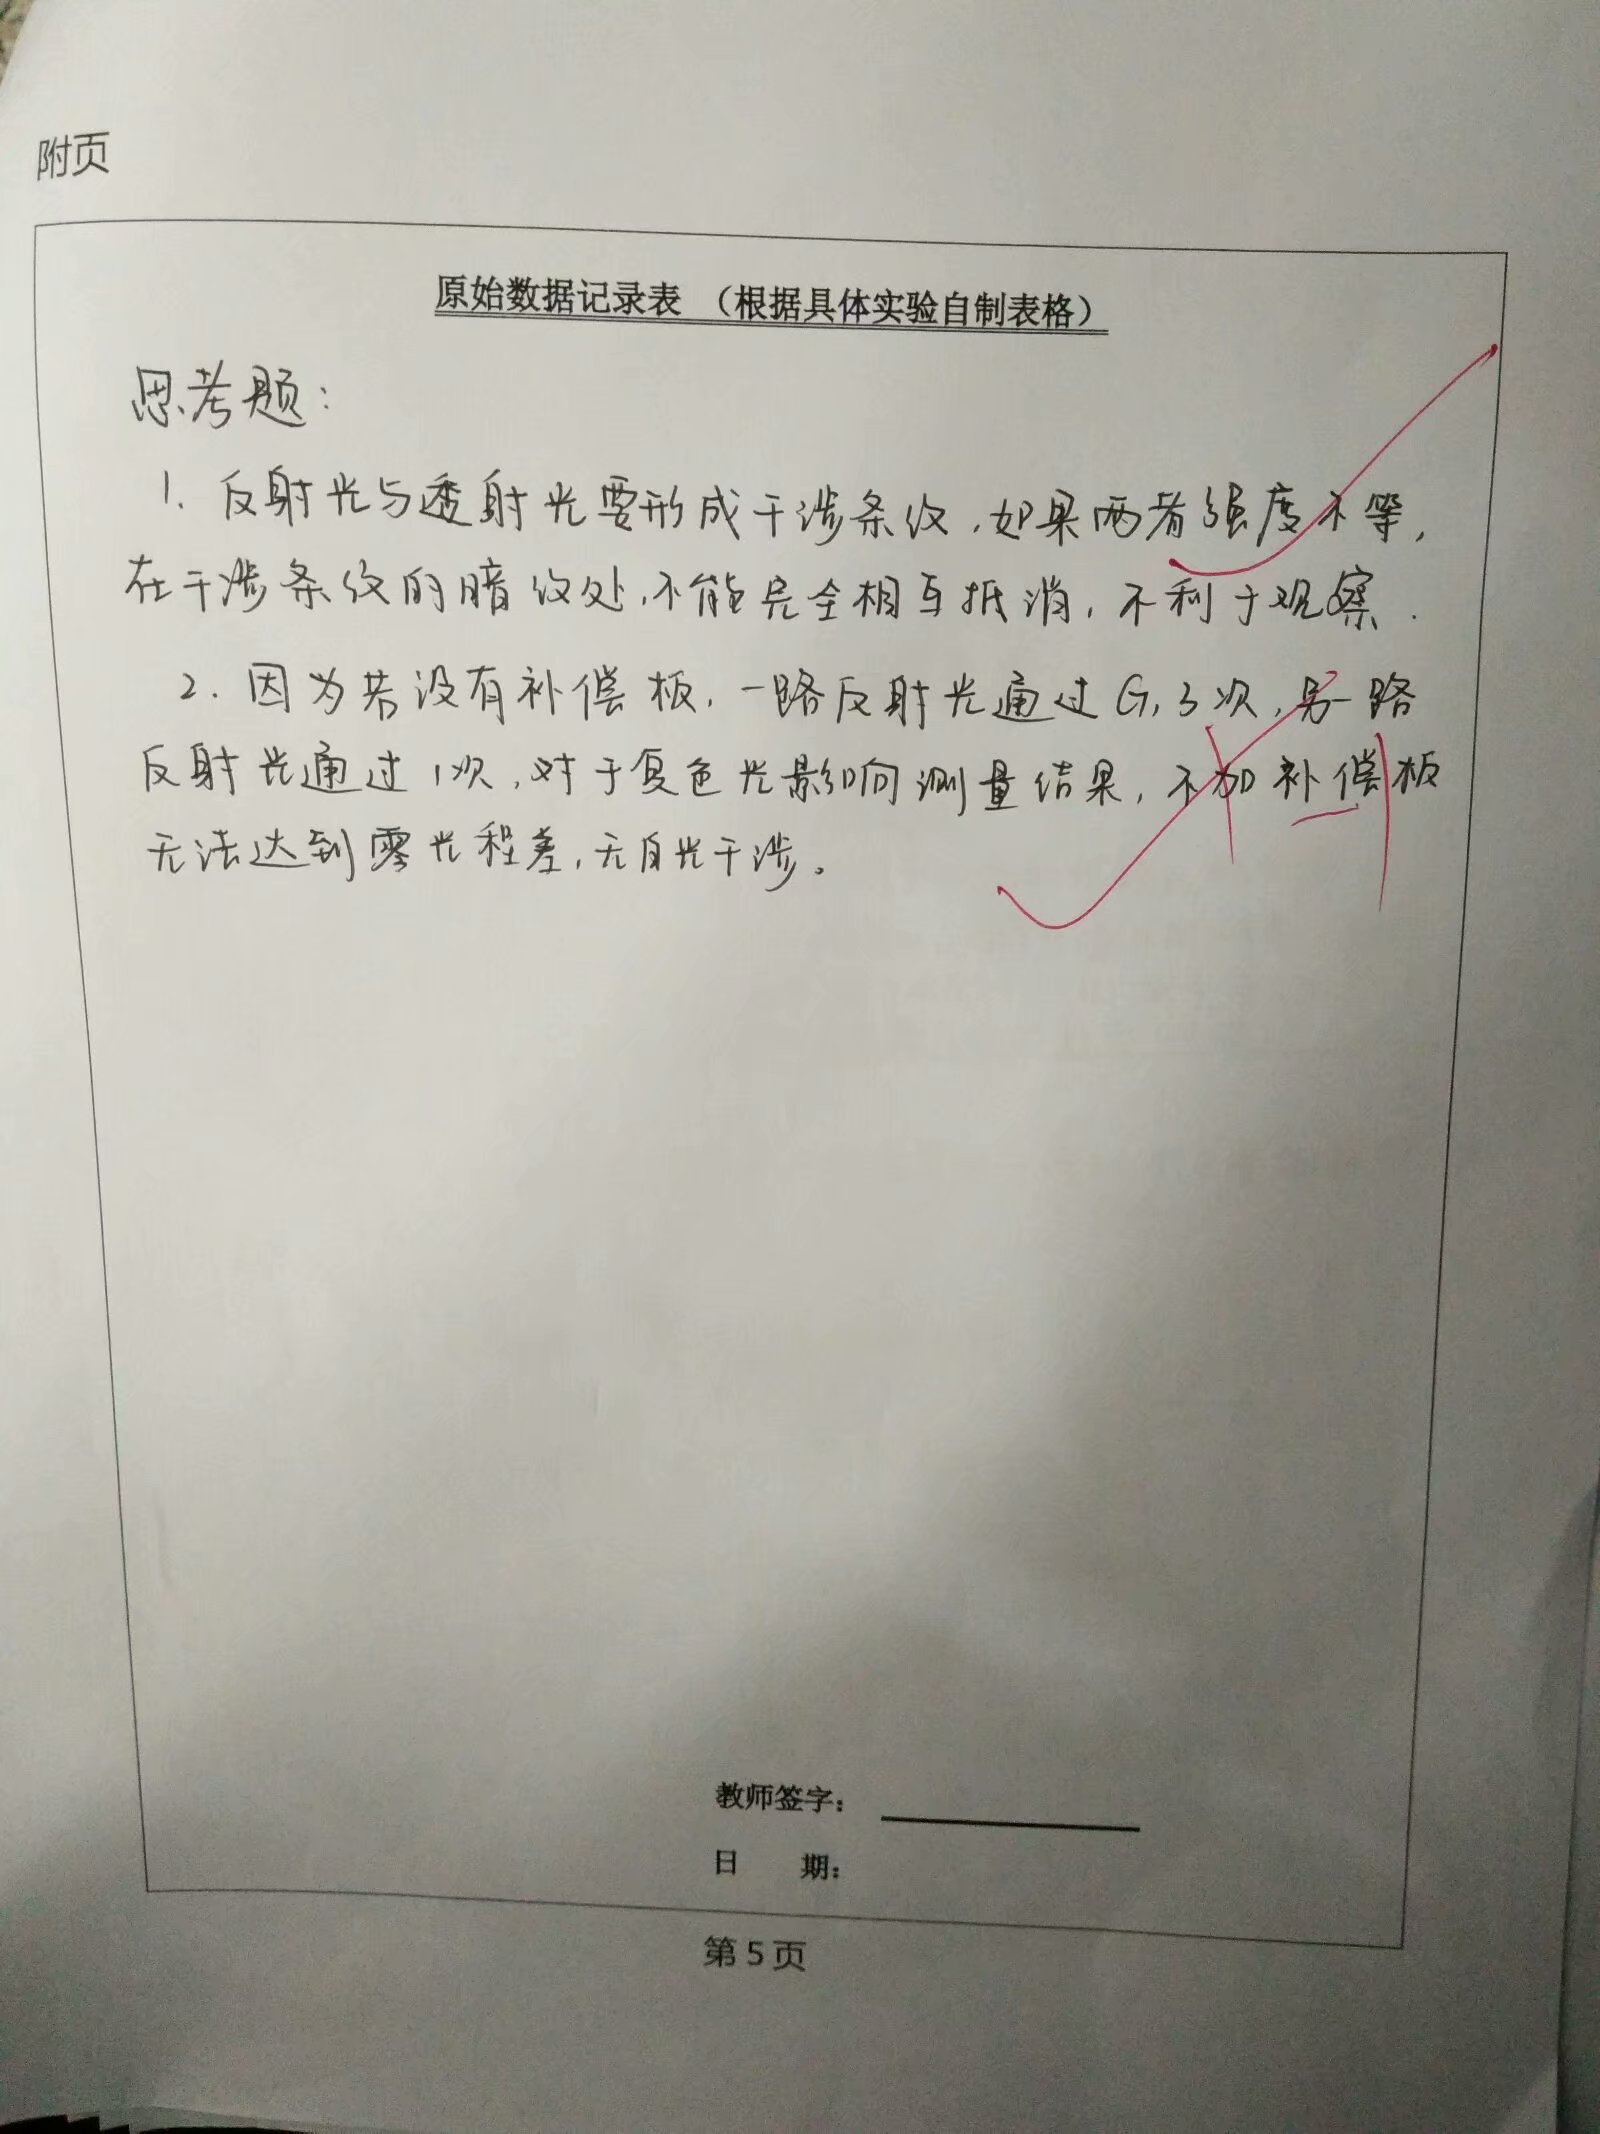 附页
原始数据记录表 （根据具体实验自制表格）
思考题：
1. 反射光与透射光要形成干涉条纹，如果两者强度不等，
在干涉条纹的暗纹处，不能完全相互抵消，不利于观察．
2. 因为若没有补偿板，一路反射光通过G₁3次，另一路
反射光通过1次，对于复色光影响测量结果，不加补偿板
无法达到零光程差，无白光干涉。
教师签字：
日 期：
第 5 页